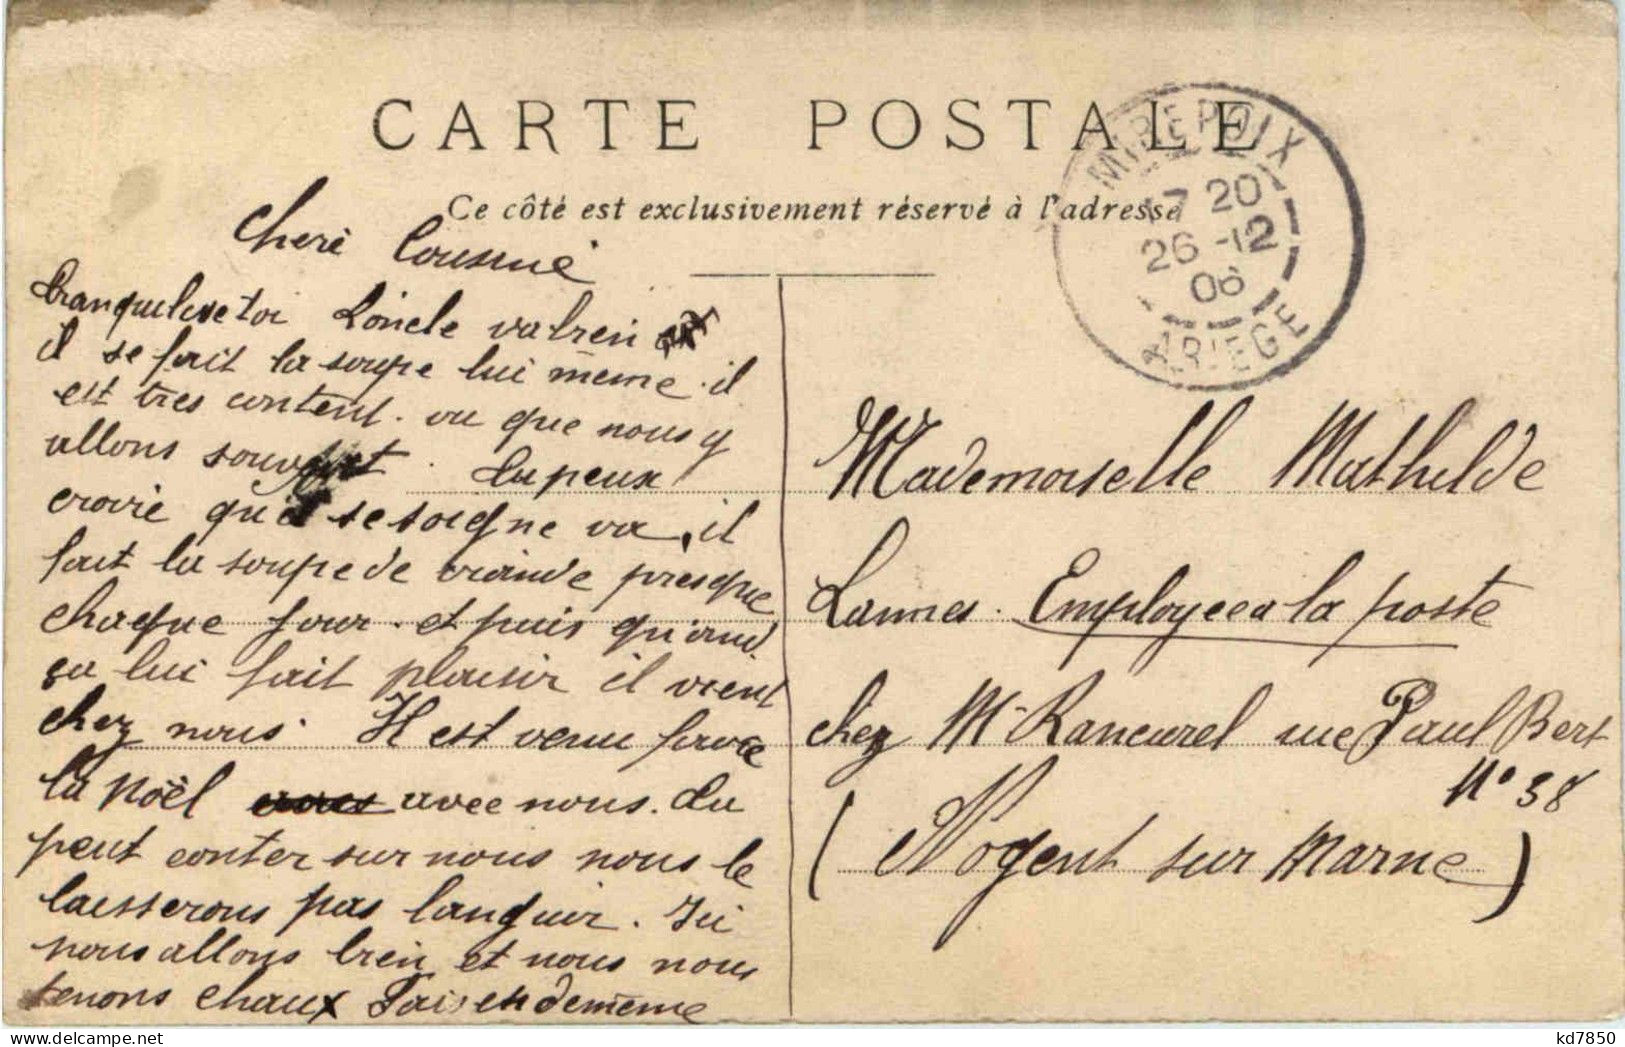 CARTE POSTALE
Ce côté est exclusivement réservé à l'adresse
MIREPOIX
17 20
26 -12
06
ARIEGE
Cheré Cousine
tranquilise toi Loncle va bien
il se fait la soupe lui même. il
est tres content. vu que nous y
allons souvent. tu peux
croire qu'il se soigne va, il
fait la soupe de viande presque
chaque jour. et puis qu'and
ça lui fait plaisir il vient
chez nous. Il est venu faire
la Noël avec nous. tu
peut conter sur nous nous le
laisserons pas languir. Ici
nous allons bien et nous nous
tenons chaux Fais en de même
Mademoiselle Mathilde
Lannes. Employee a la poste
chez Mr Rancurel rue Paul Bert
N° 38
(Nogent sur Marne)
kd7850